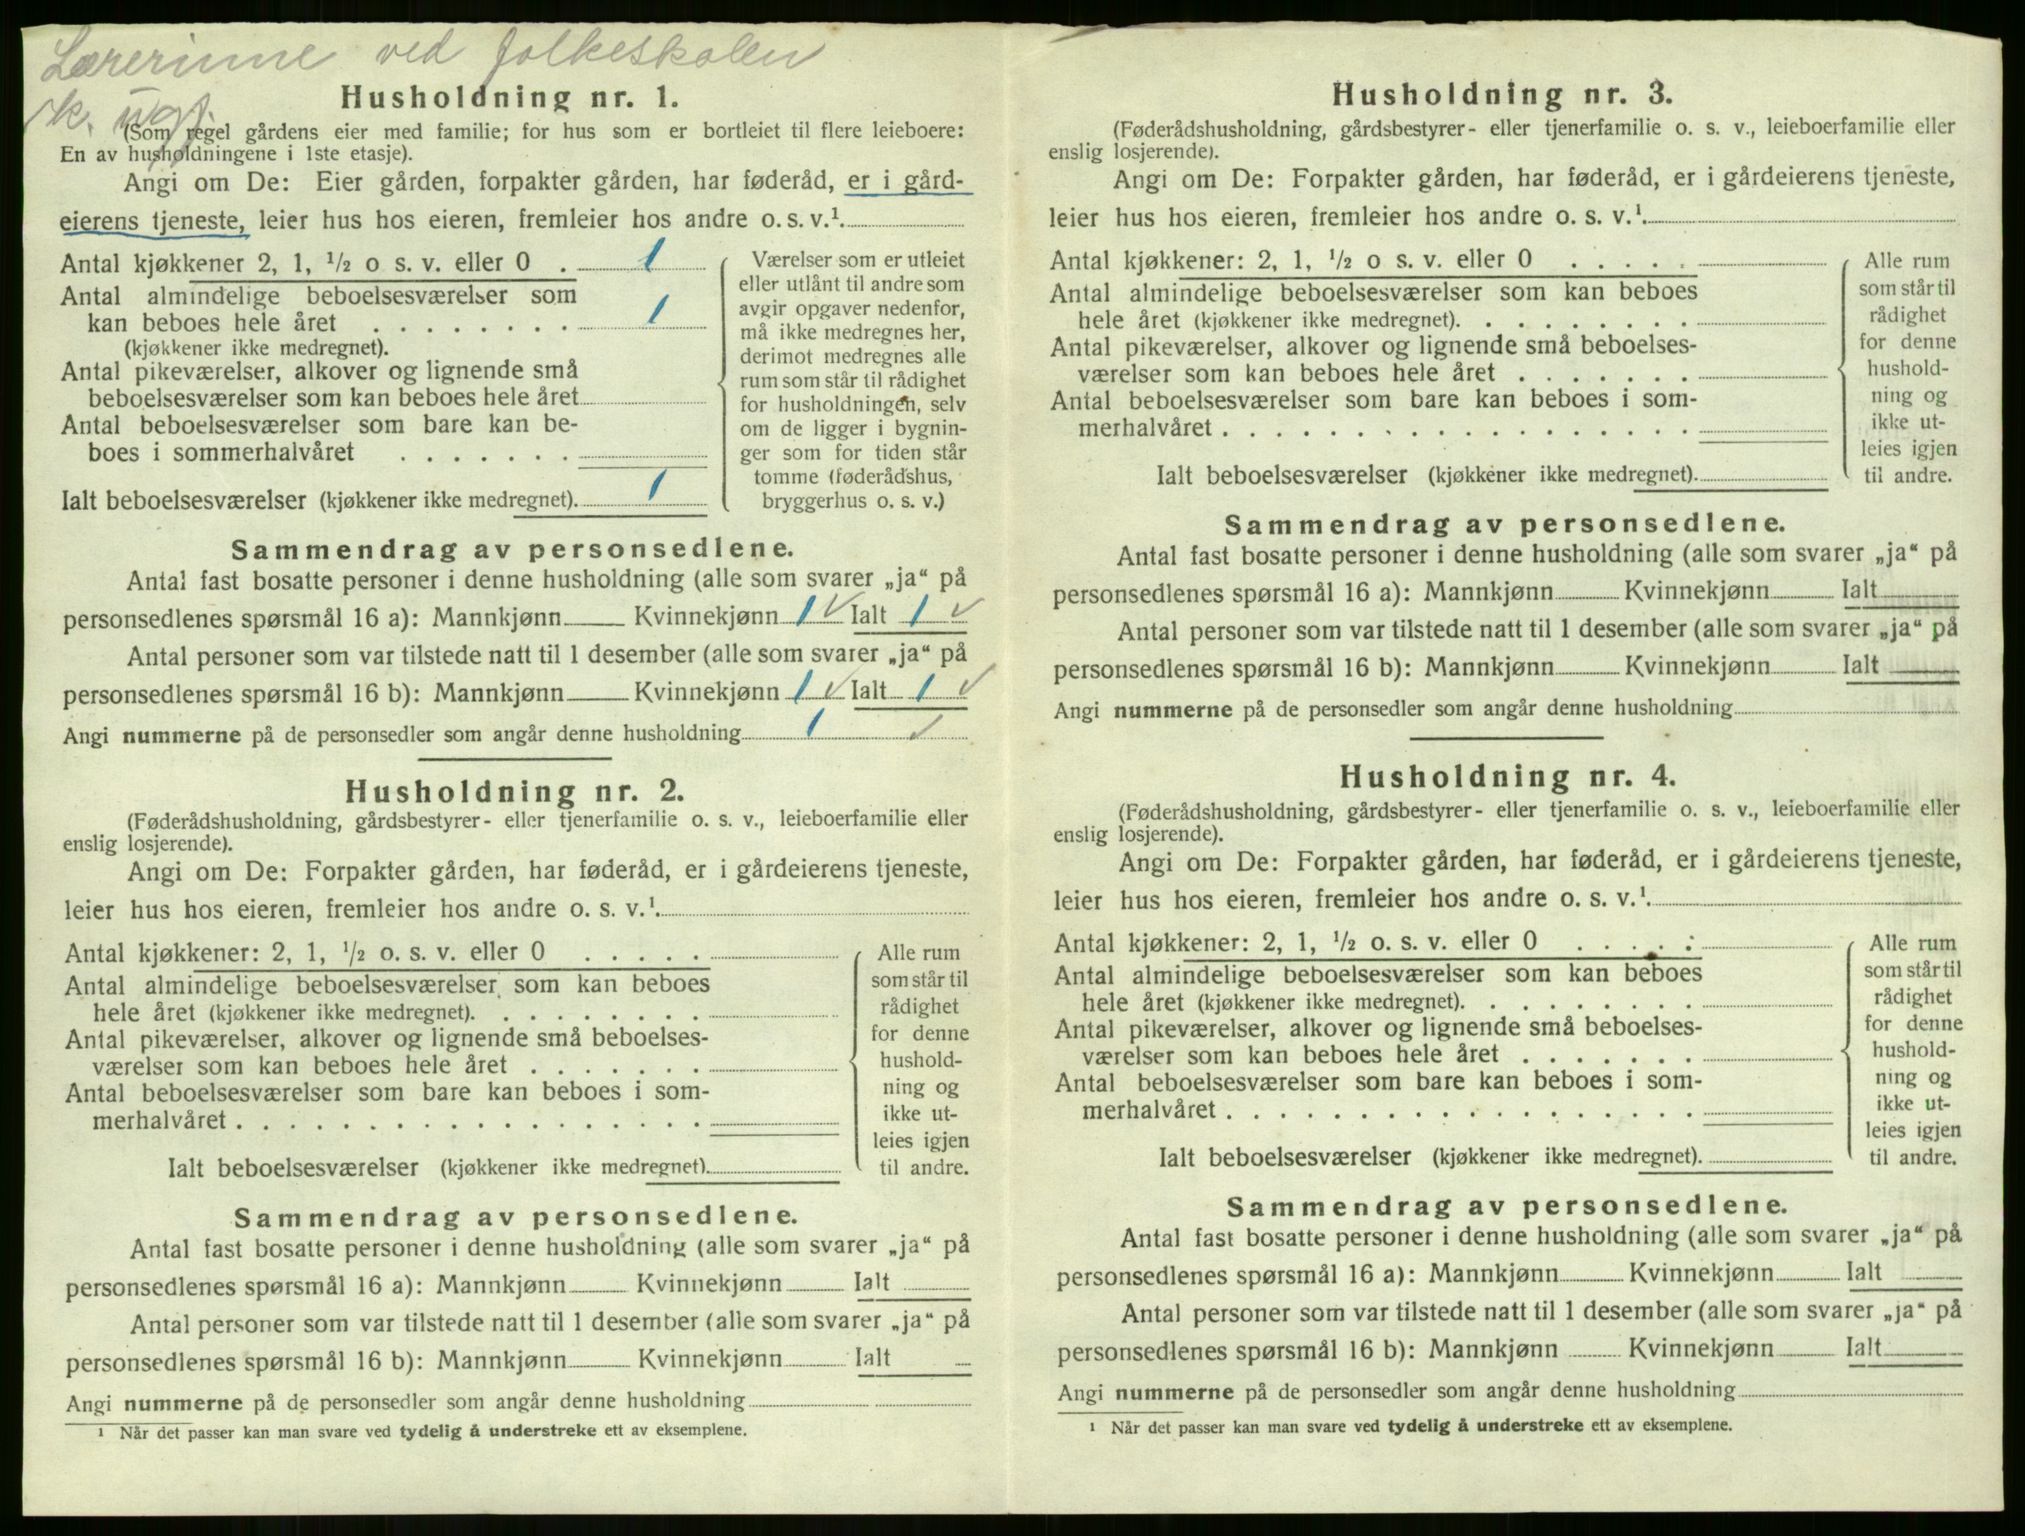 Lærerinne ved folkeskolen
k. ugf.
Husholdning nr. 1.
(Som regel gårdens eier med familie; for hus som er bortleiet til flere leieboere:
En av husholdningene i 1ste etasje).
Angi om De: Eier gården, forpakter gården, har føderåd, er i gård-
eierens tjeneste, leier hus hos eieren, fremleier hos andre o. s. v.¹.
Antal kjøkkener 2, 1, ½ o s. v. eller 0 . 1
Antal almindelige beboelsesværelser som
kan beboes hele året . . . . . . . . 1
(kjøkkener ikke medregnet).
Antal pikeværelser, alkover og lignende små
beboelsesværelser som kan beboes hele året
Antal beboelsesværelser som bare kan be-
boes i sommerhalvåret . . . . . . .
Ialt beboelsesværelser (kjøkkener ikke medregnet). 1
Værelser som er utleiet
eller utlånt til andre som
avgir opgaver nedenfor,
må ikke medregnes her,
derimot medregnes alle
rum som står til rådighet
for husholdningen, selv
om de ligger i bygnin-
ger som for tiden står
tomme (føderådshus,
bryggerhus o. s. v.)
Sammendrag av personsedlene.
Antal fast bosatte personer i denne husholdning (alle som svarer „ja“ på
personsedlenes spørsmål 16 a): Mannkjønn Kvinnekjønn 1 ✓ Ialt 1 ✓
Antal personer som var tilstede natt til 1 desember (alle som svarer „ja“ på
personsedlenes spørsmål 16 b): Mannkjønn Kvinnekjønn 1 ✓ Ialt 1 ✓
Angi nummerne på de personsedler som angår denne husholdning 1 ✓
Husholdning nr. 2.
(Føderådshusholdning, gårdsbestyrer- eller tjenerfamilie o. s. v., leieboerfamilie eller
enslig losjerende).
Angi om De: Forpakter gården, har føderåd, er i gårdeierens tjeneste,
leier hus hos eieren, fremleier hos andre o. s. v.¹.
Antal kjøkkener: 2, 1, ½ o. s. v. eller 0 . . . . .
Antal almindelige beboelsesværelser som kan beboes
hele året (kjøkkener ikke medregnet). . . . . . . . .
Antal pikeværelser, alkover og lignende små beboelses-
værelser som kan beboes hele året . . . . . . .
Antal beboelsesværelser som bare kan beboes i som-
merhalvåret . . . . . . . . . . . . . . . . . .
Ialt beboelsesværelser (kjøkkener ikke medregnet).
Alle rum
som står til
rådighet
for denne
hushold-
ning og
ikke ut-
leies igjen
til andre.
Sammendrag av personsedlene.
Antal fast bosatte personer i denne husholdning (alle som svarer „ja“ på
personsedlenes spørsmål 16 a): Mannkjønn Kvinnekjønn Ialt
Antal personer som var tilstede natt til 1 desember (alle som svarer „ja“ på
personsedlenes spørsmål 16 b): Mannkjønn Kvinnekjønn Ialt
Angi nummerne på de personsedler som angår denne husholdning
¹ Når det passer kan man svare ved tydelig å understreke ett av eksemplene.
Husholdning nr. 3.
(Føderådshusholdning, gårdsbestyrer- eller tjenerfamilie o. s. v., leieboerfamilie eller
enslig losjerende).
Angi om De: Forpakter gården, har føderåd, er i gårdeierens tjeneste,
leier hus hos eieren, fremleier hos andre o. s. v.¹.
Antal kjøkkener: 2, 1, ½ o s. v. eller 0 . . . . .
Antal almindelige beboelsesværelser som kan beboes
hele året (kjøkkener ikke medregnet). . . . . . . . .
Antal pikeværelser, alkover og lignende små beboelses-
værelser som kan beboes hele året . . . . . . .
Antal beboelsesværelser som bare kan beboes i som-
merhalvåret . . . . . . . . . . . . . . . . . .
Ialt beboelsesværelser (kjøkkener ikke medregnet).
Alle rum
som står til
rådighet
for denne
hushold-
ning og
ikke ut-
leies igjen
til andre.
Sammendrag av personsedlene.
Antal fast bosatte personer i denne husholdning (alle som svarer „ja“ på
personsedlenes spørsmål 16 a): Mannkjønn Kvinnekjønn Ialt
Antal personer som var tilstede natt til 1 desember (alle som svarer „ja“ på
personsedlenes spørsmål 16 b): Mannkjønn Kvinnekjønn Ialt
Angi nummerne på de personsedler som angår denne husholdning
Husholdning nr. 4.
(Føderådshusholdning, gårdsbestyrer- eller tjenerfamilie o. s. v., leieboerfamilie eller
enslig losjerende).
Angi om De: Forpakter gården, har føderåd, er i gårdeierens tjeneste,
leier hus hos eieren, fremleier hos andre o. s. v.¹.
Antal kjøkkener: 2, 1, ½ o. s. v. eller 0 . . . . .
Antal almindelige beboelsesværelser som kan beboes
hele året (kjøkkener ikke medregnet). . . . . . . . .
Antal pikeværelser, alkover og lignende små beboelses-
værelser som kan beboes hele året . . . . . . .
Antal beboelsesværelser som bare kan beboes i som-
merhalvåret . . . . . . . . . . . . . . . . . .
Ialt beboelsesværelser (kjøkkener ikke medregnet).
Alle rum
som står til
rådighet
for denne
hushold-
ning og
ikke ut-
leies igjen
til andre.
Sammendrag av personsedlene.
Antal fast bosatte personer i denne husholdning (alle som svarer „ja“ på
personsedlenes spørsmål 16 a): Mannkjønn Kvinnekjønn Ialt
Antal personer som var tilstede natt til 1 desember (alle som svarer „ja“ på
personsedlenes spørsmål 16 b): Mannkjønn Kvinnekjønn Ialt
Angi nummerne på de personsedler som angår denne husholdning
¹ Når det passer kan man svare ved tydelig å understreke ett av eksemplene.